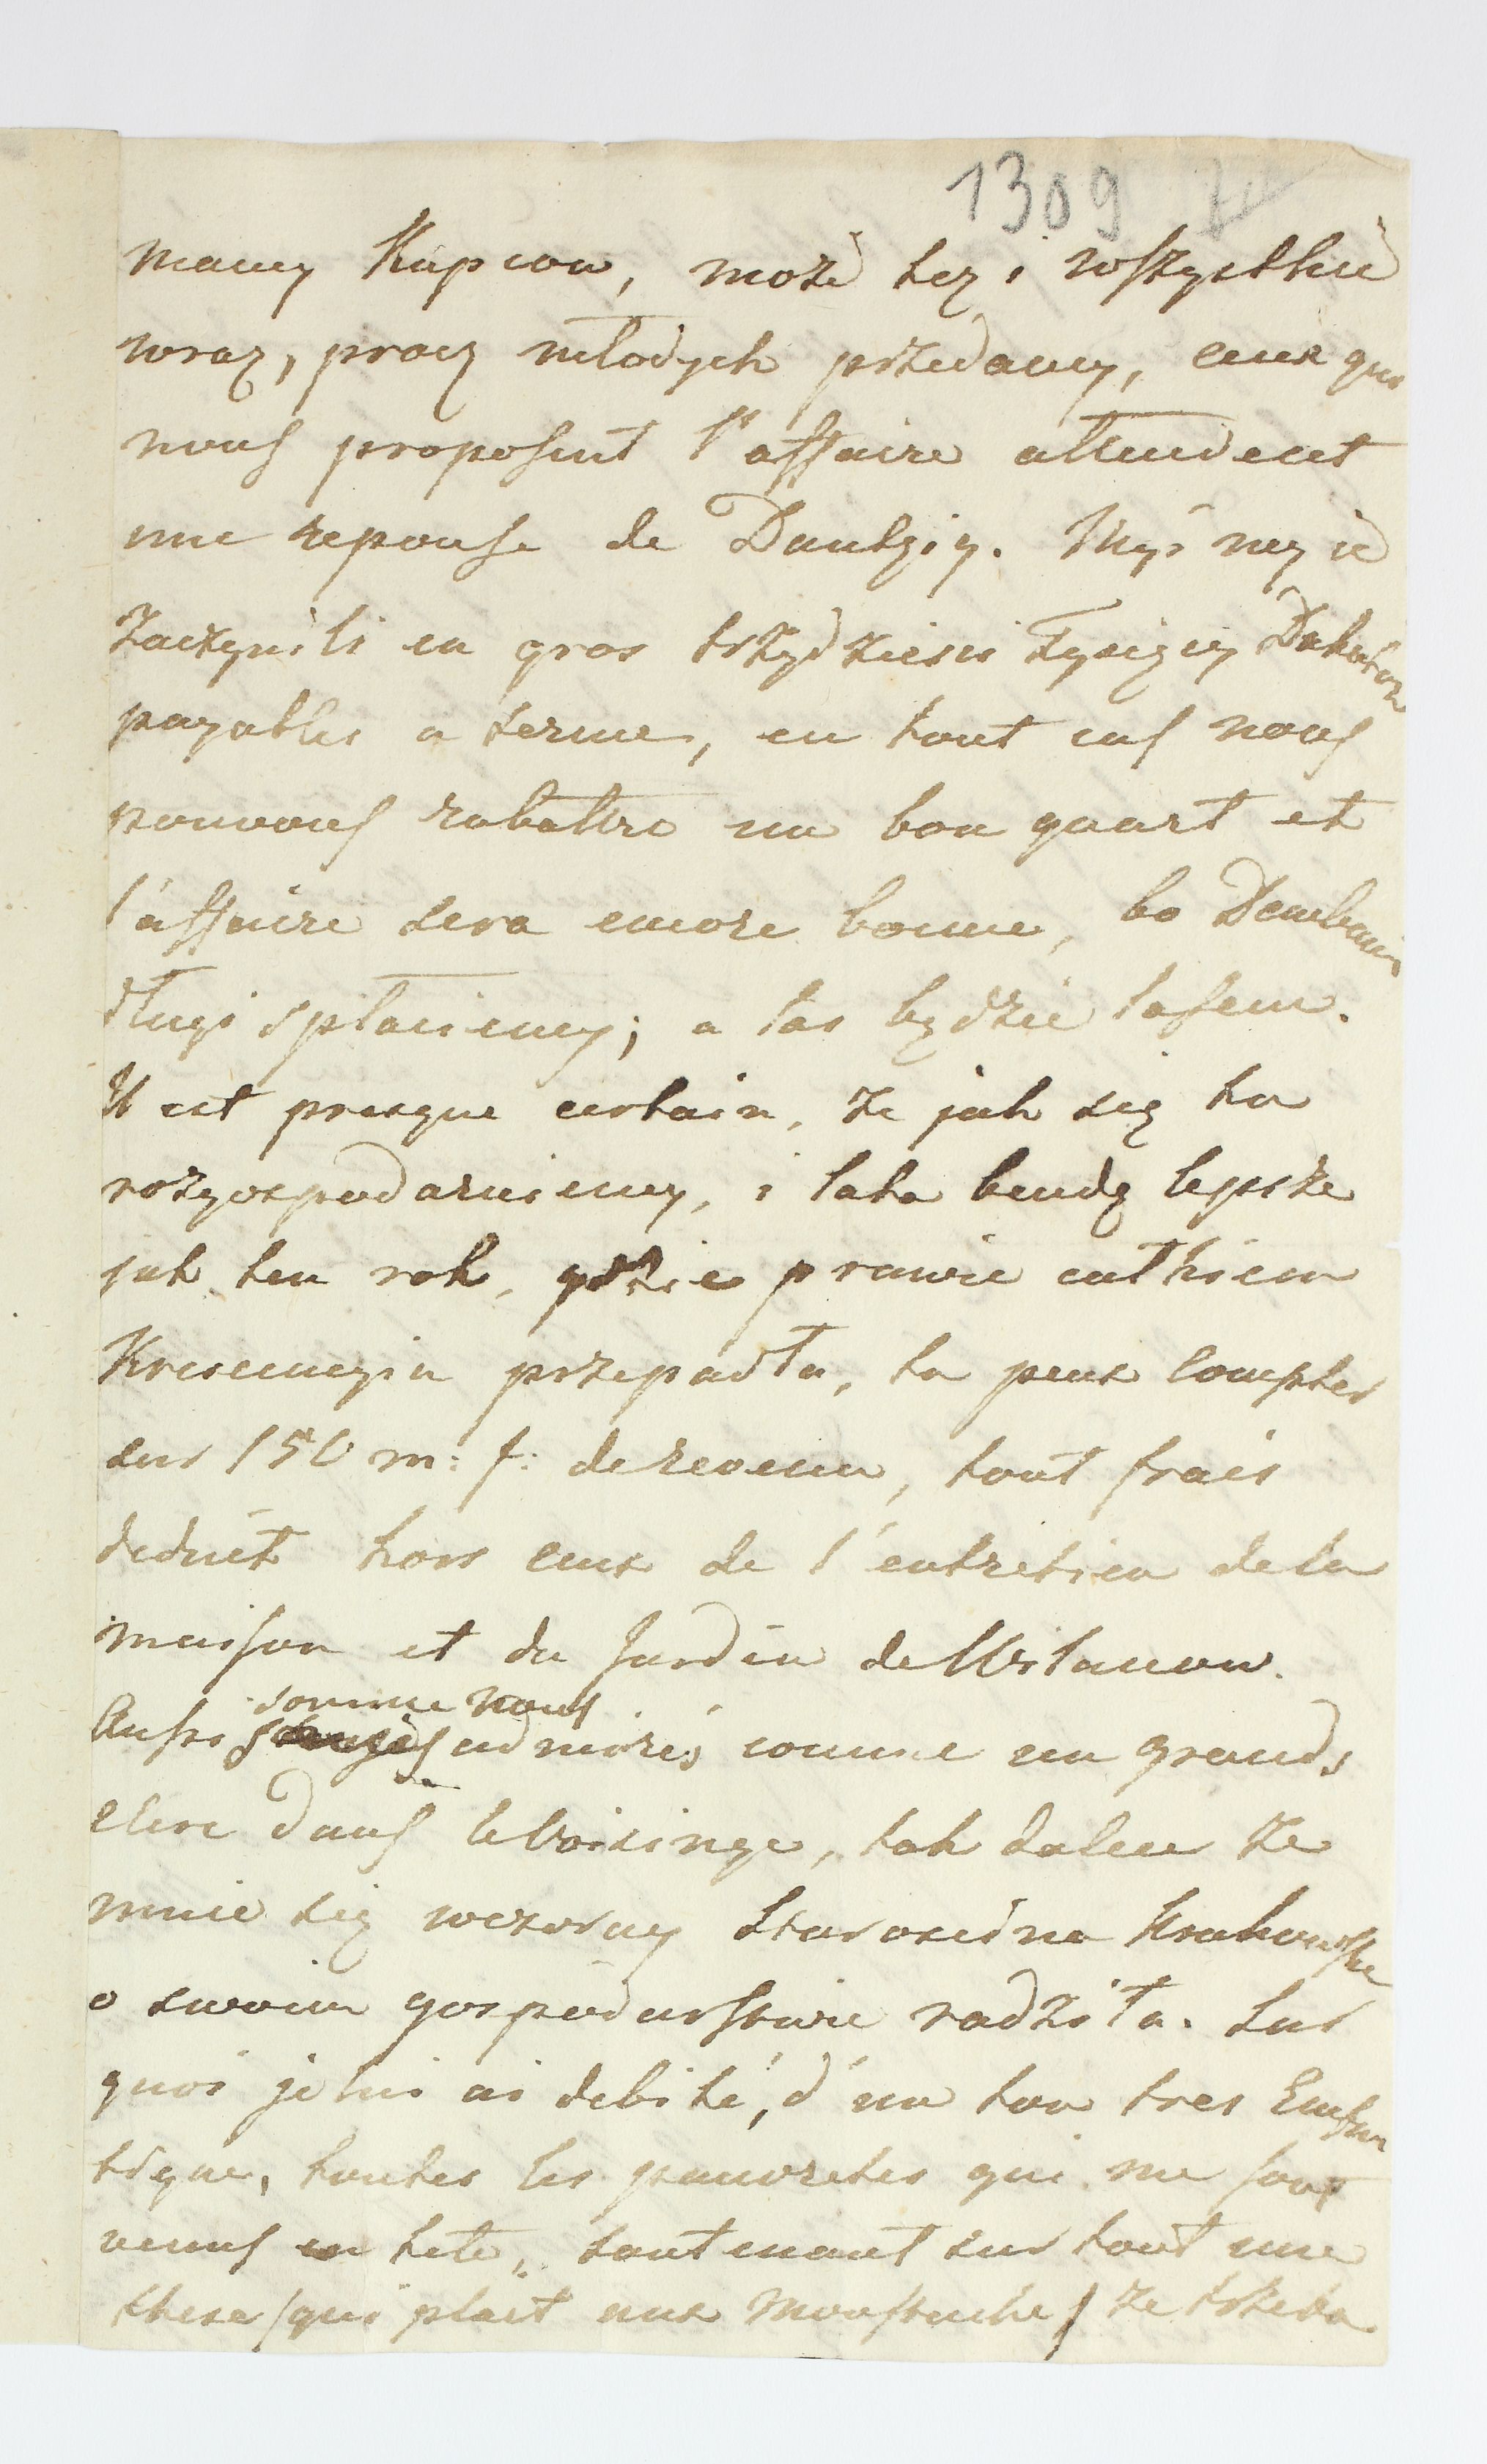 1309
mamy Kupcow, może też i wszystkie
wraz, procz młodych przedamy, ceux qui
nous proposent l'affaire attendent
une reponse de Dantzig. Myś my je
Zaczynili en gros trzydziesci Tysięcy Dukatow
payables a terme, en tout cas nous
pouvons rabattre un bon quart et
l'affaire sera encore bonne, bo Dembami
długi spłaciemy; a las będzie lasem.
Il est presque certain, że jak się to
rozgospodarujemy, i lata bendą lepsze
jak ten rok, gdzie prawie całkiem
przepadła, tu peux compter
sur 150 m: f: de revenu, tout frais
deduit hors ceux de l'entretien de la
maison et du Jardin de Wilanow.
Aussi somme nous admirés comme un grands
clerc dans le voisinge, tak dalece że
mnie się wczoray Starościna Krakowska
o swoim gospodarstwie radziła. Sur
quoi je lui ai debité, d'un ton tres Emfa
tique, toutes les pauvretes qui me sont
venus en tete, soutenant sur tout une
these (qui plait aux Moustache) że trzeba